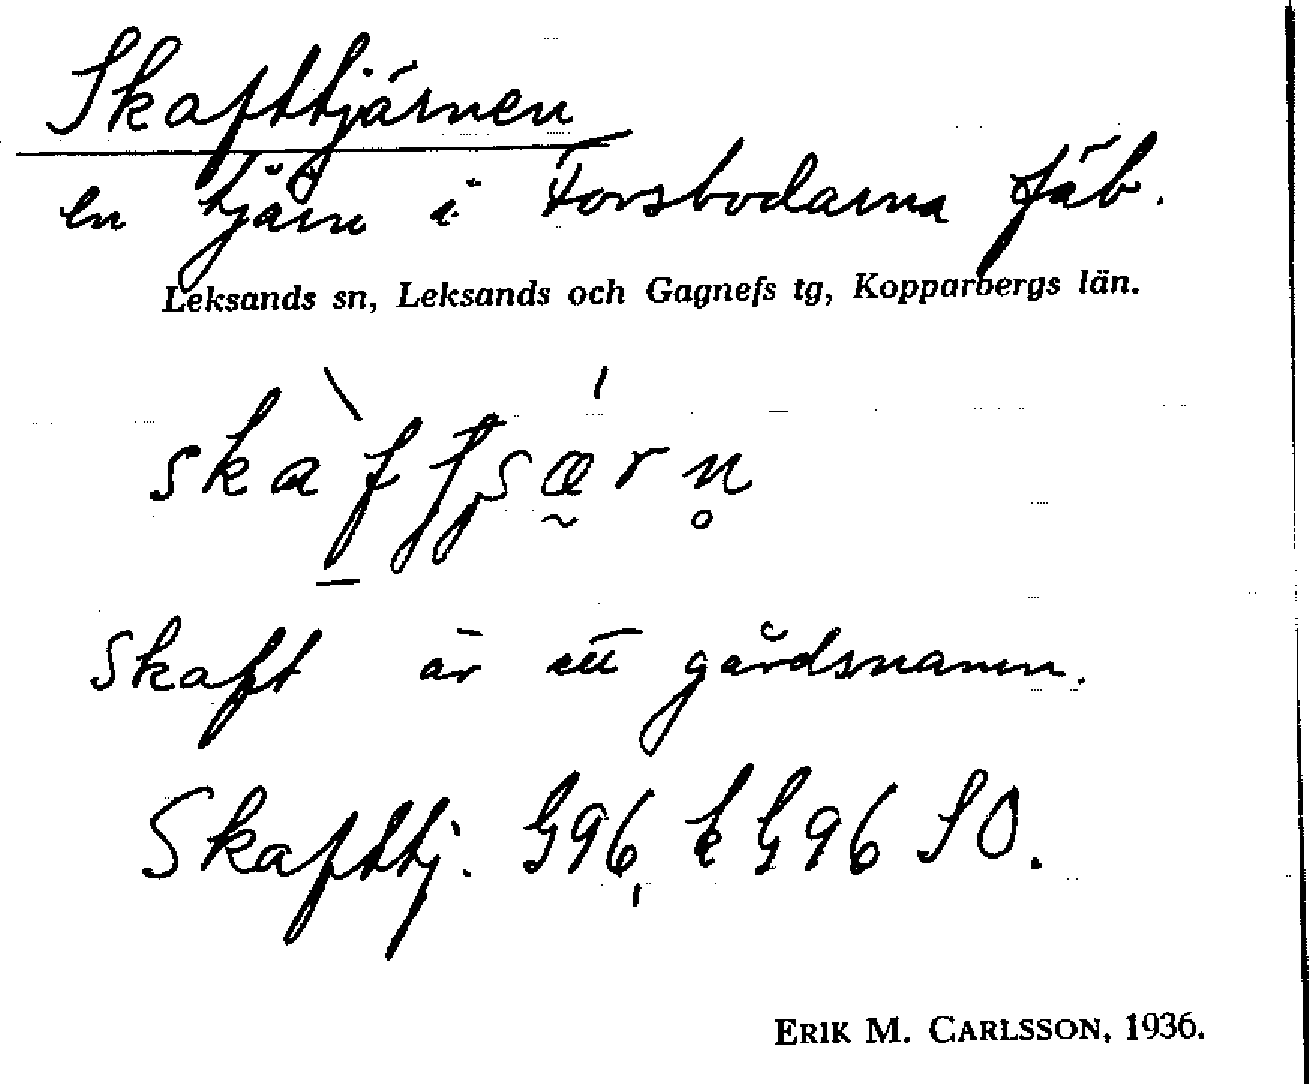 Skafttjärnen
en tjärn i Forsbodarna fäb.
Leksands sn, Leksands och Gagnefs tg, Kopparbergs län.
Skaft är ett gårdsnamn.
Skafttj. G96, k G96 SO.
ERIK M. CARLSSON, 1936.